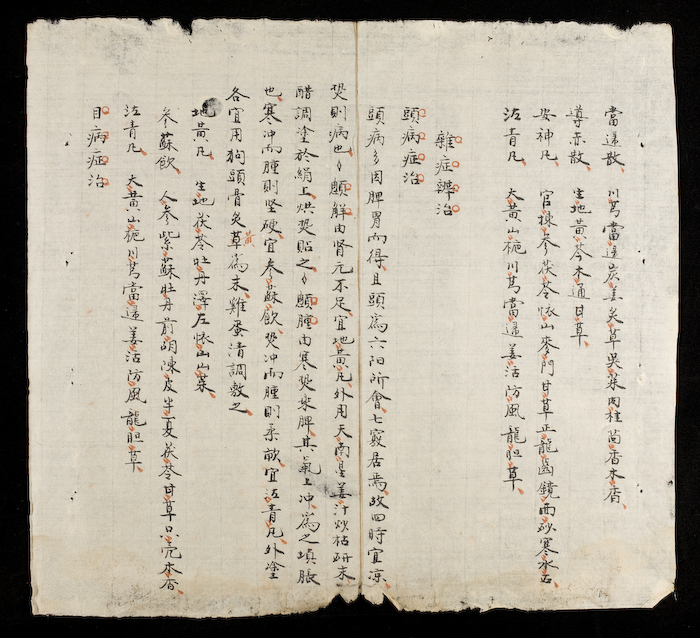 當歸散 川芎當歸炭姜炙草吳茱肉桂茴香木香
導赤散 生地黃芩木通甘草
安神凡 官棟參茯苓怀山麥門甘草正龍齒鏡面砂寒水石
泻青凡 大黃山梔川芎當歸羌活防風龍胆草
雜症辨治
頭病症治
頭病多因脾胃而得且頭爲六阳所會七竅居焉故四時宜凉
熒則病也〻顖解由腎元不足宜地黃凡外用天南星姜汁炒枯研末
醋調塗於絹上烘熒貼之〻顖腫由寒熒乘脾其氣上冲爲之填脹
也寒冲而腫則坚硬宜参蘇飲熒冲而腫則柔軟宜泻青凡外塗
各宜用狗頭骨炙黃草爲末雞蛋清調敷之
地黃凡 生地茯苓牡丹澤左怀山山茱
参蘇飲 人参紫蘇牡丹前胡陳皮半夏茯苓甘草只壳木香
泻青凡 大黃山梔川芎當歸羌活防風龍胆草
目病症治